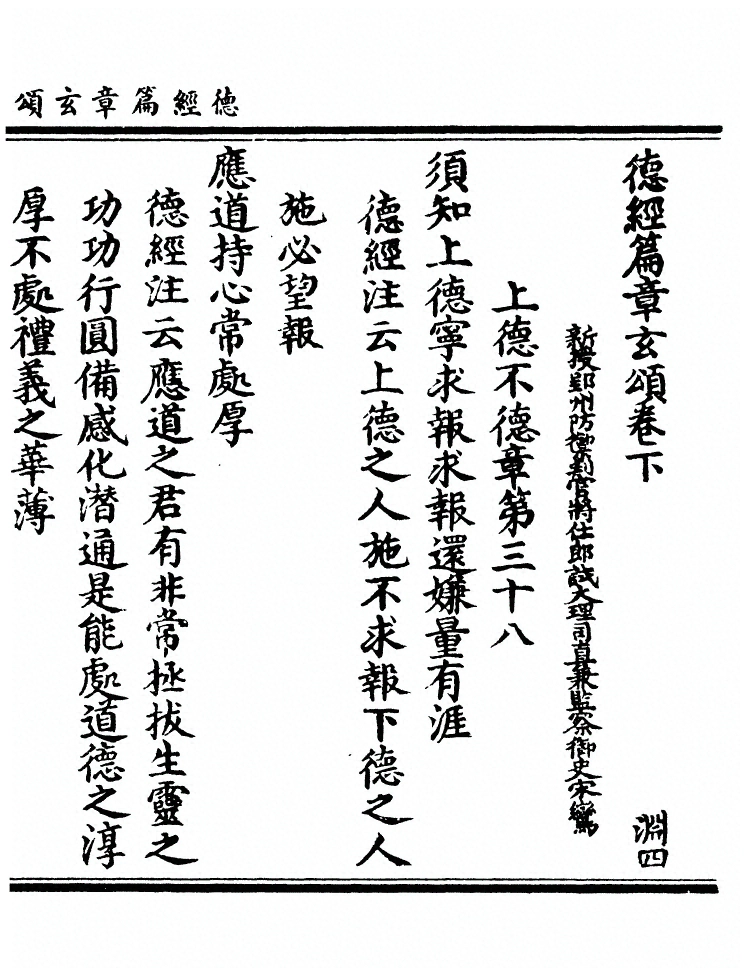 德經篇章玄頌
德經篇章玄頌卷下
淵四
新授郢州防禦判官將仕郎試大理司直兼監察御史宋鸞
上德不德章第三十八
須知上德寧求報求報還嫌量有涯
德經注云上德之人施不求報下德之人
施必望報
應道持心常處厚
德經注云應道之君有非常拯拔生靈之
功功行圓備感化潛通是能處道德之淳
厚不處禮義之華薄